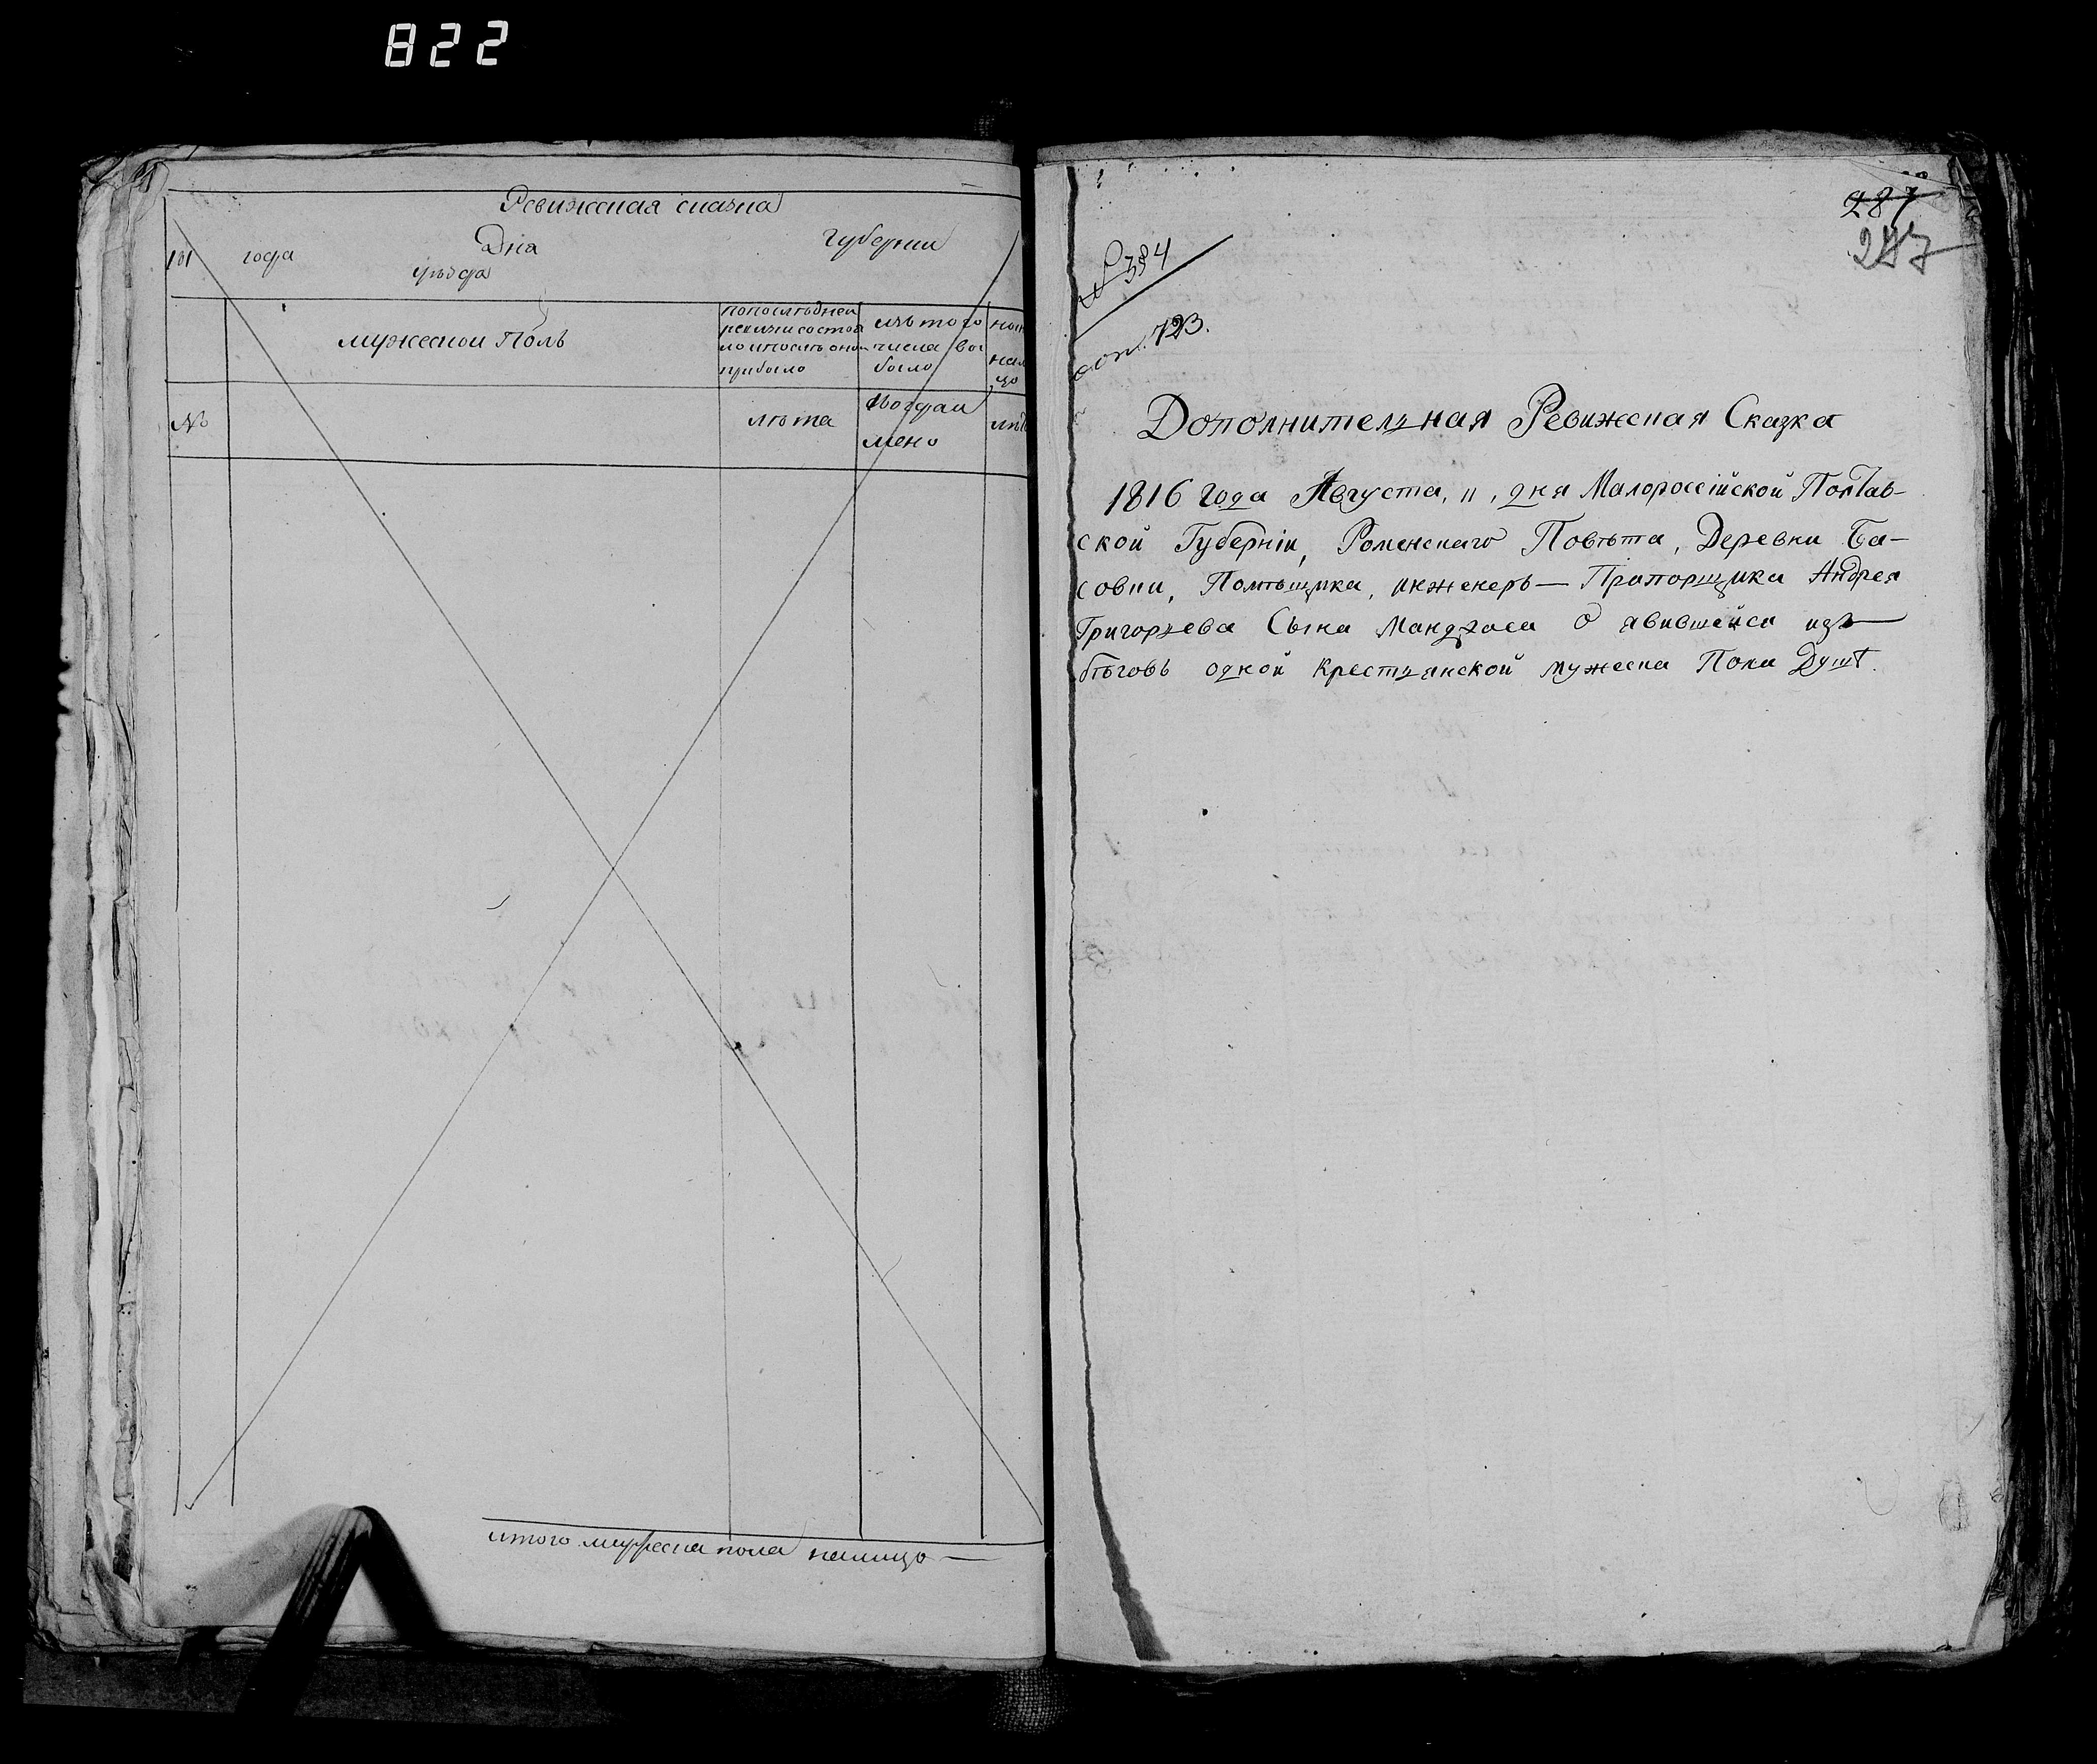 822
Ревижеская сказка
181 года Дня Губернии
уѣзда
мужеской Полъ
по последней
ревизии состоя
ло и после оной
прибыло
изъ того
числа вы
было
№
лѣта
когда и
мено
итого мужеска пола налицо —
287
287
№ 384
доп. 723.
Дополнительная Ревижская Сказка
1816 Года Августа, 11, дня Малороссійской Полтав-
ской Губерніи, Роменскаго Повѣта, Деревни Ба-
совки, Помѣщика, инженеръ — Прапорщика Андрея
Григорьева Сына Мандзоса О явившейся изъ
бѣговъ одной крестьянской мужеска Пола Душѣ.